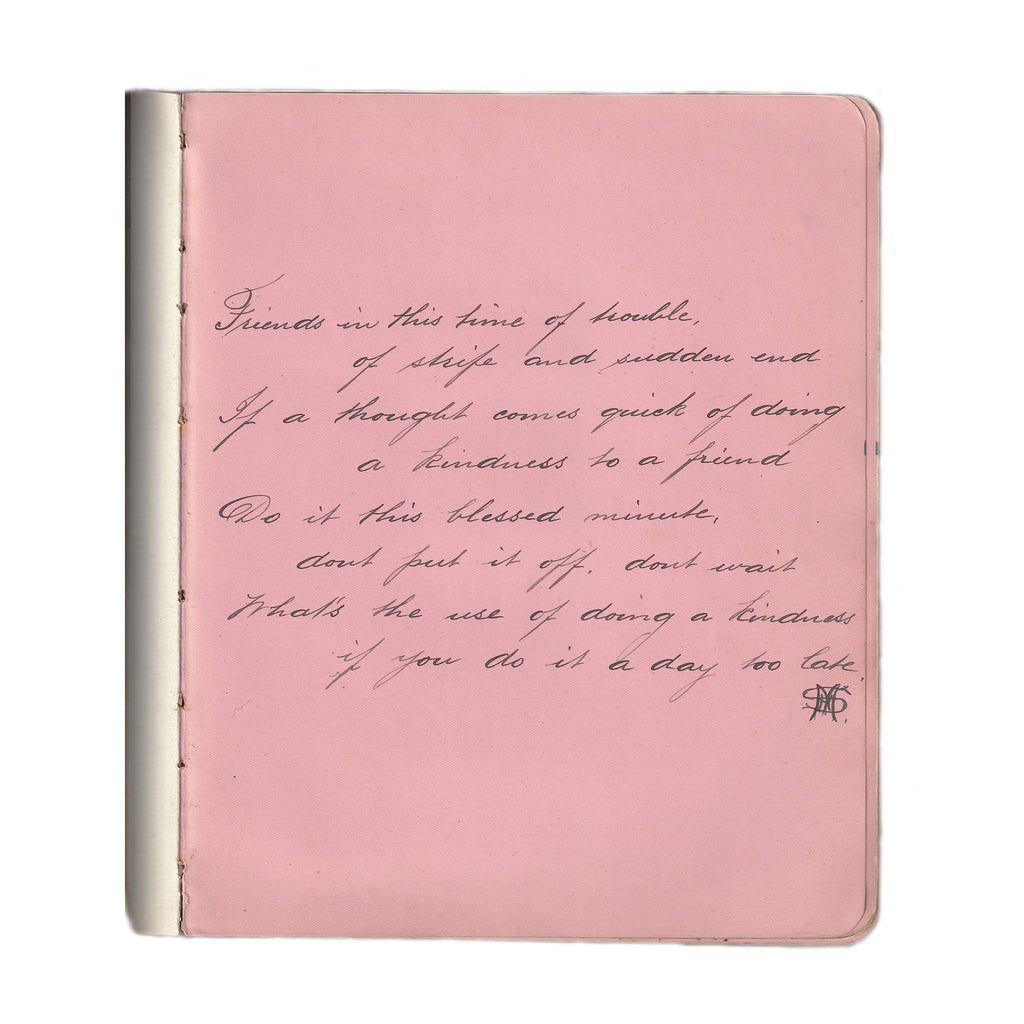 Friends in this time of trouble,
of strife and sudden end
If a thought comes quick of doing
a kindness to a friend
Do it this blessed minute,
dont put it off. dont wait
What's the use of doing a kindness
if you do it a day too late.